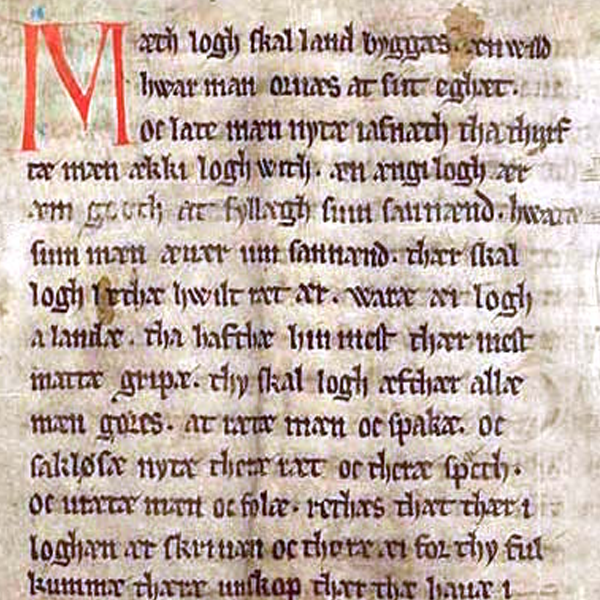 Mæth logh skal land byggæs. æn wild
hwar man oruæs at sit eghæt.
oc late mæn nytæ iafnæth tha thyrf
tæ mæn ækki logh with. æn ængi logh ær
æm gooth at fyllægh sum sannænd. hwaræ
sum mæn æuær um sannænd. thær skal
logh lethæ hwilt ræt ær. waræ æi logh
a landæ. tha hafthæ hin mest thær mest
mattæ gripæ. thy skal logh æfthær allæ
mæn gøres. at rætæ mæn oc spakæ. oc
sakløsæ nytæ theræ ræt oc theræ spæth.
oc urætæ mæn oc folæ. rethæs thæt thær i
loghæn ær skriuan oc thoræ æi for thy ful
kummæ theræ unskop thær the hauæ i